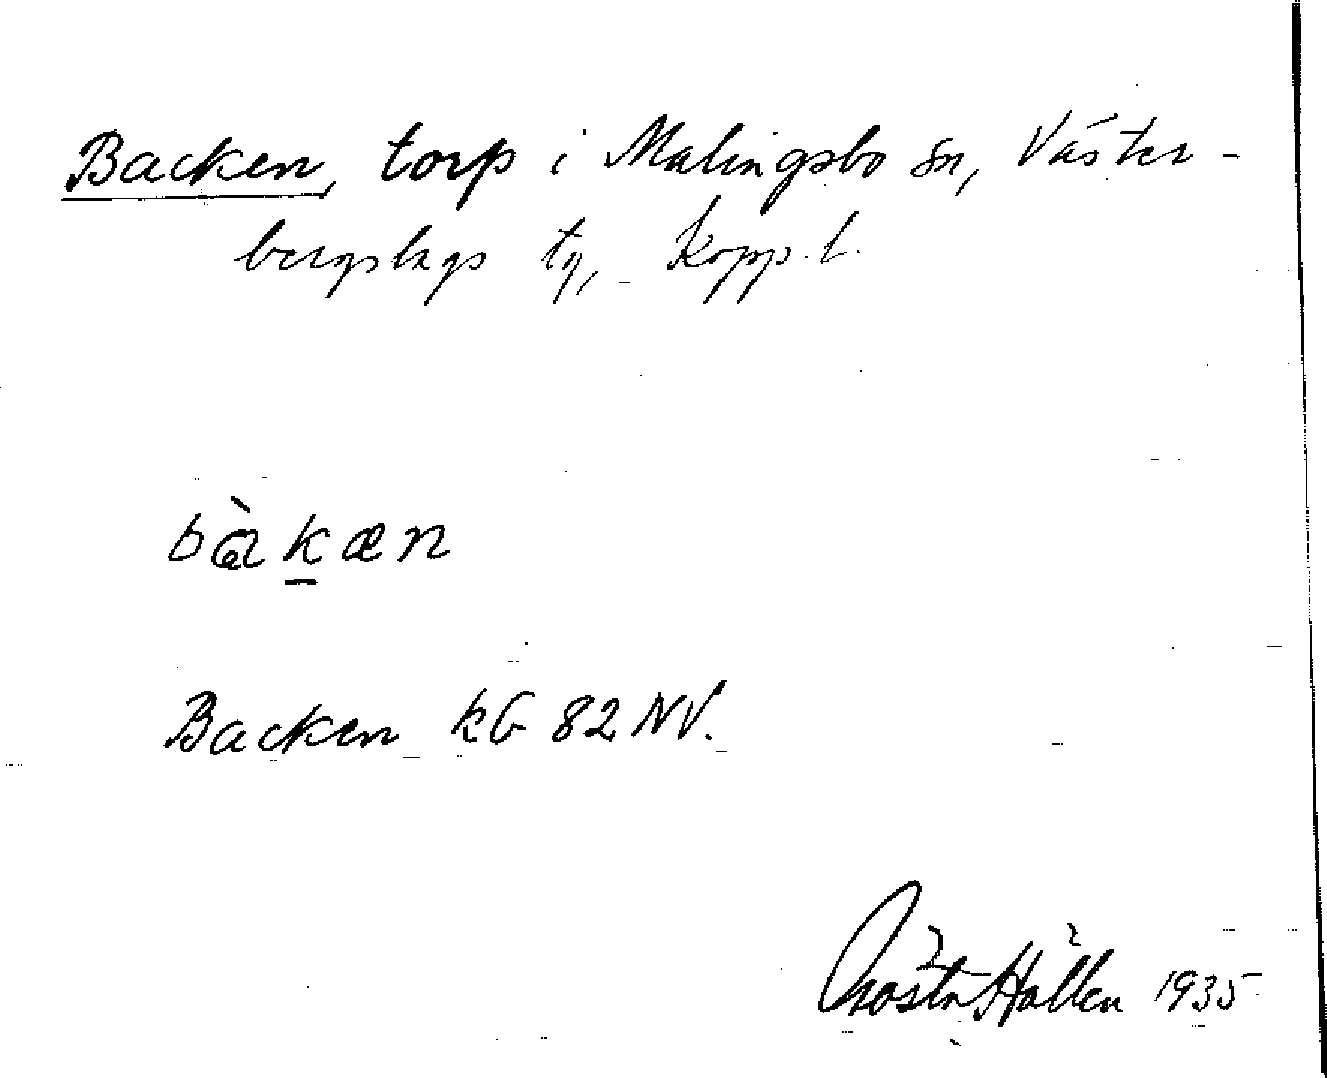 Backen, torp i Malingsbo sn, Väster-
bergslags tg, Kopp. l.
bàk̠æn
Backen kG 82 NV.
Gösta Hallén 1935